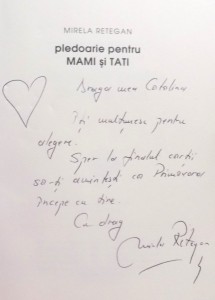 MIRELA RETEGAN
pledoarie pentru
MAMI și TATI
Draga mea Catalina
Îți mulțumesc pentru
alegere.
Sper la finalul cărții
să-ți amintești că Primăvara
începe cu tine.
Cu drag
Mirela Retegan